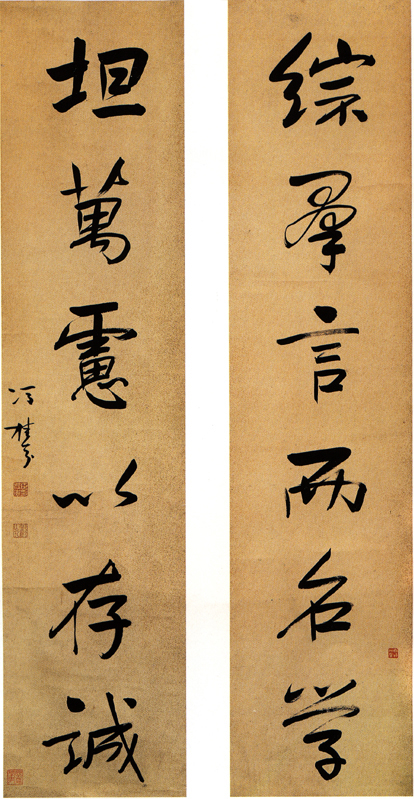 綜羣言而名学
坦萬慮以存誠
馮桂芬